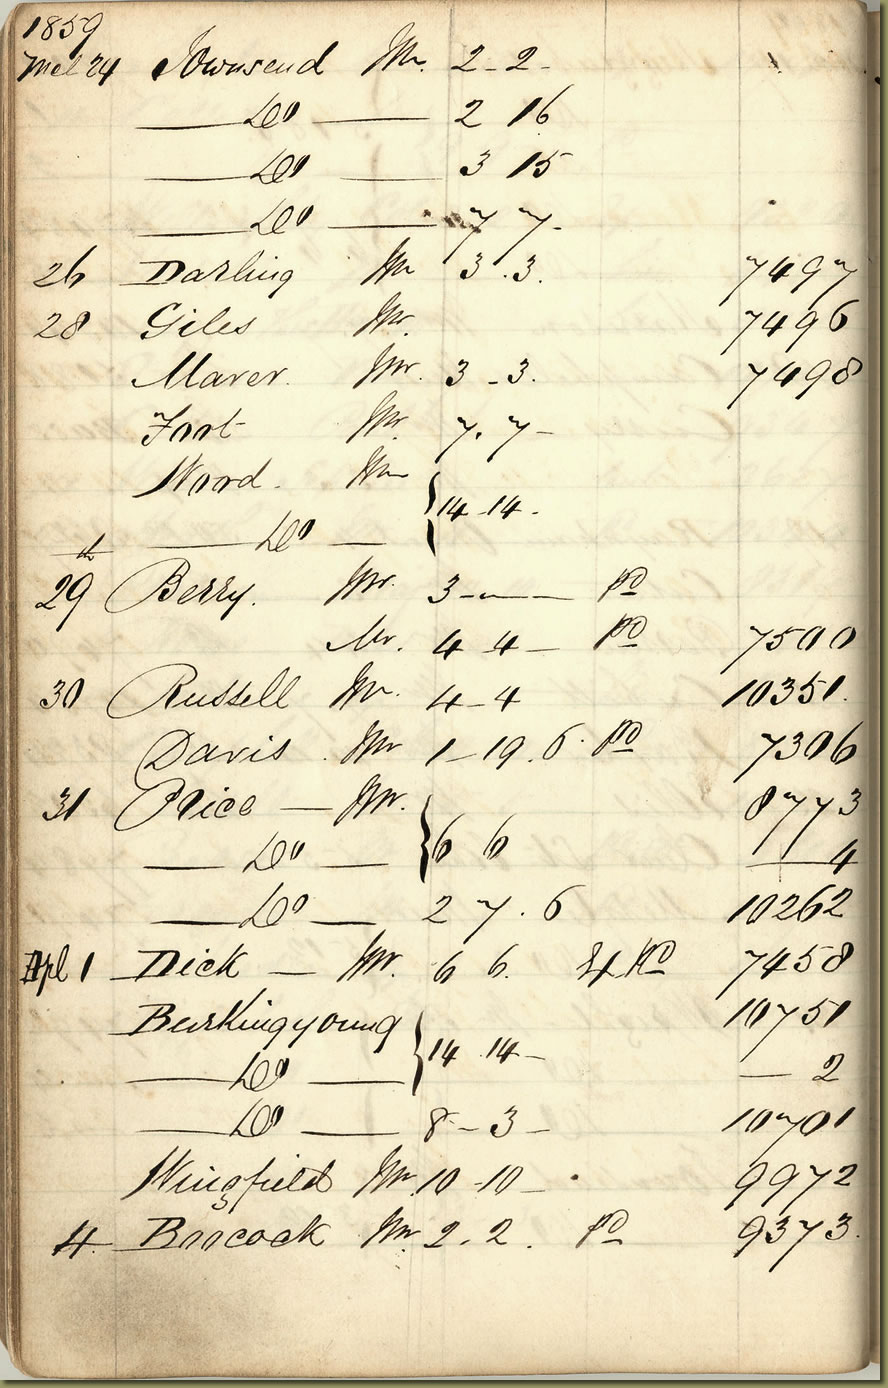 1859
Mch 24 Townsend Mr. 2-2-
Do 2 16
Do 3 15
Do 7 7-
26 Darling Mr 3.3. 7497
28 Giles Mr. 7496
Marer. Mr. 3-3. 7498
Foot Mr. 7.7-
Wood. Mr
Do 14 14.
29th Berry. Mr. 3-"- PD
Mr. 4 4- PD 7500
30 Russell Mr. 4-4 10351.
Davis. Mr 1-19.6. PD 7306
31 Price — Mr. 8773
Do 6 6 — 4
Do 2 7.6 10262
Apl 1 Dick — Mr. 6 6. PD 7458
Burkingyoung 10751
Do 14 14- — 2
Do 8-3- 10701
Wingfield Mr. 10-10- 9972
4. Brocock Mr. 2.2. PD 9373.